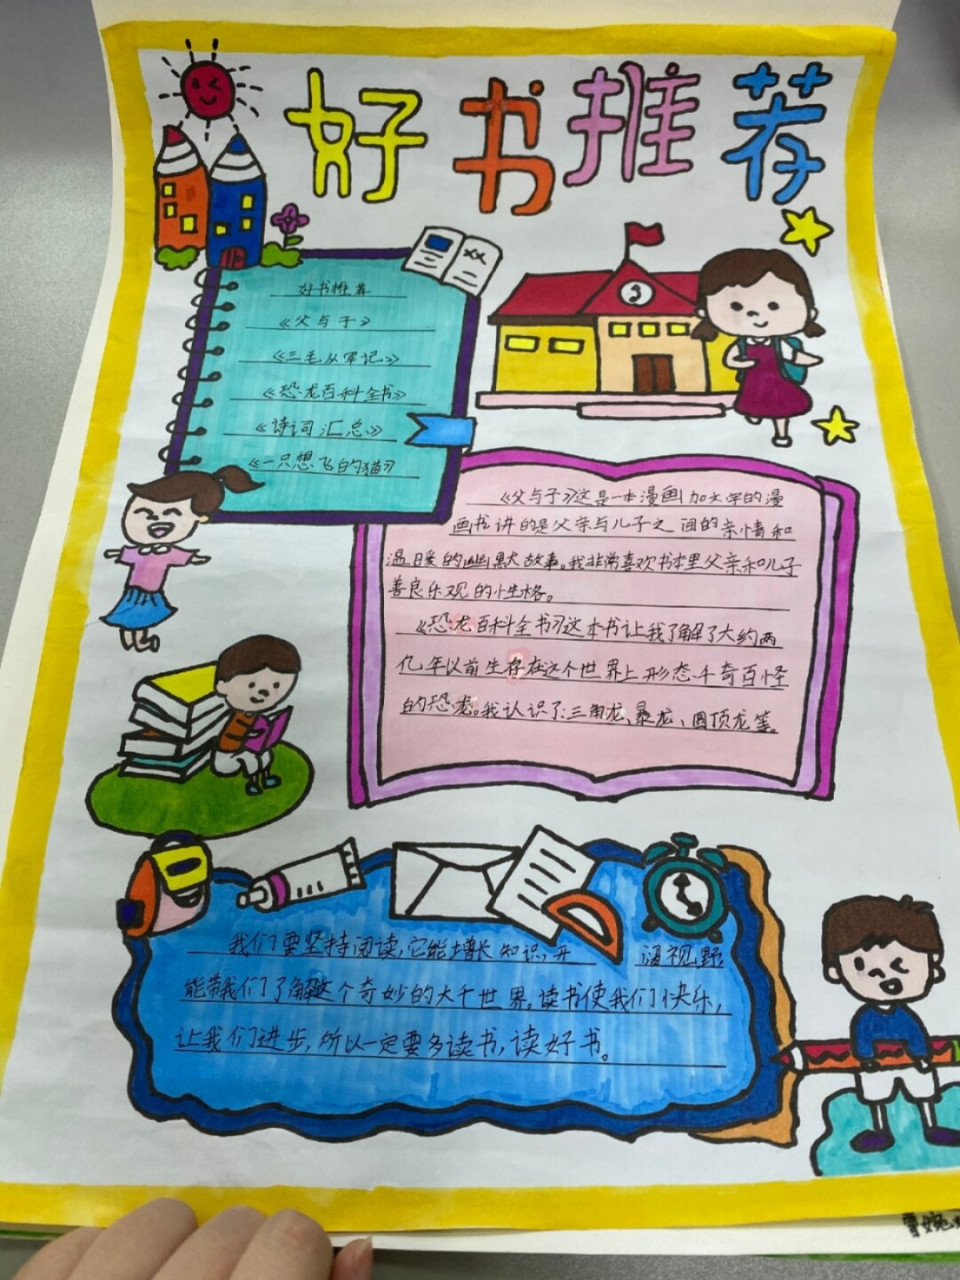 好书推荐
好书推荐
《父与子》
《三毛从军记》
《恐龙百科全书》
《诗词汇总》
《一只想飞的猫》
《父与子》这是一本漫画加文字的漫
画书讲的是父亲与儿子之间的亲情和
温暖的幽默故事。我非常喜欢书本里父亲和儿子
善良乐观的性格。
《恐龙百科全书》这本书让我了解了大约两
亿年以前生存在这个世界上形态千奇百怪
的恐龙。我认识了三角龙、暴龙、圆顶龙等。
我们要坚持阅读,它能增长知识,开阔视野
能带我们了解这个奇妙的大千世界,读书使我们快乐,
让我们进步,所以一定要多读书,读好书。